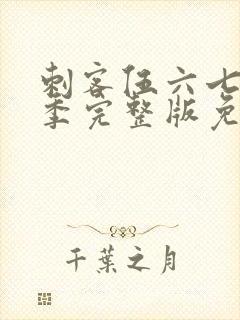 刺客伍六七
季完整版免
千葉之月